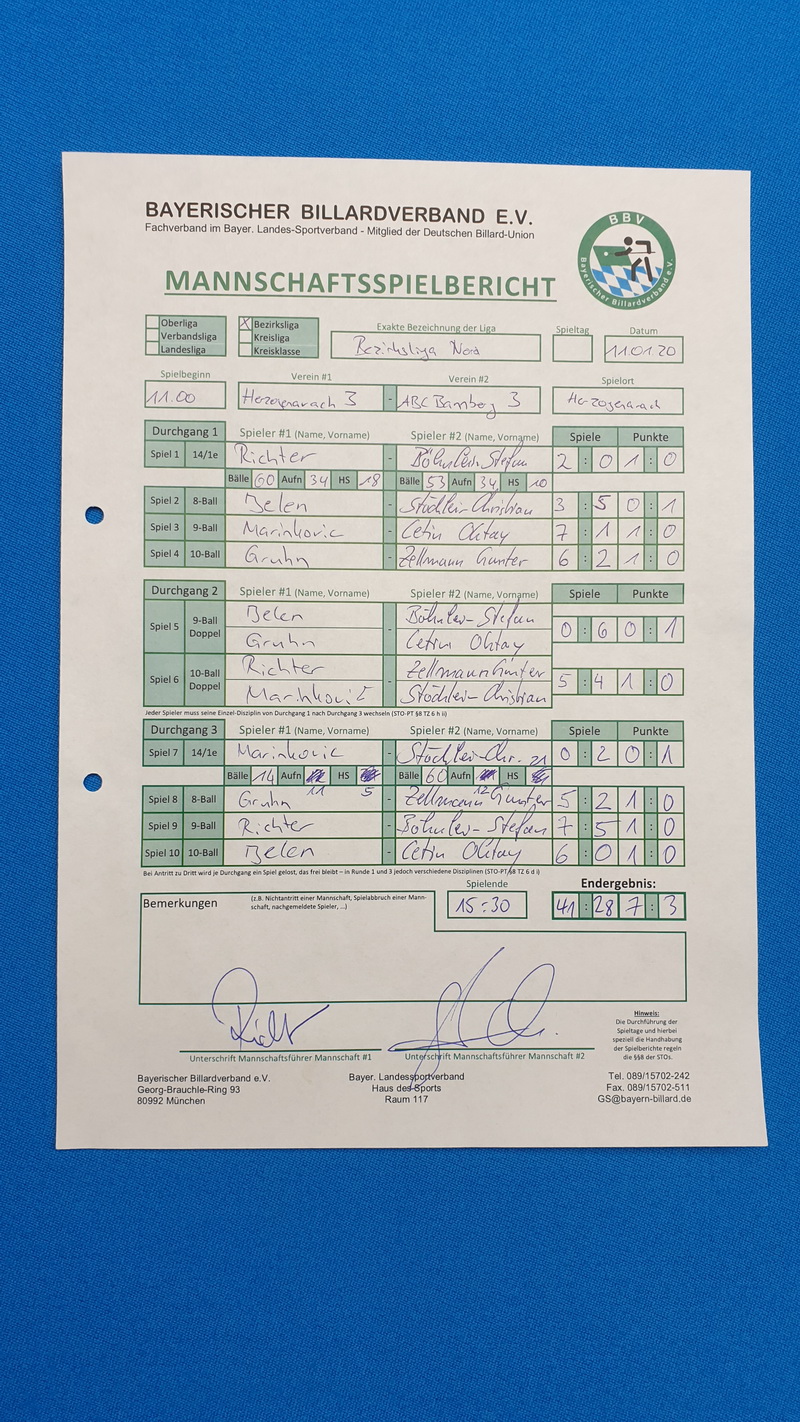 BAYERISCHER BILLARDVERBAND E.V.
Fachverband im Bayer. Landes-Sportverband - Mitglied der Deutschen Billard-Union
BBV
Bayerischer Billardverband e.V.
MANNSCHAFTSSPIELBERICHT
Oberliga
Verbandsliga
Landesliga
X Bezirksliga
Kreisliga
Kreisklasse
Exakte Bezeichnung der Liga Spieltag Datum
Bezirksliga Nord 11.01.20
Spielbeginn Verein #1 Verein #2 Spielort
11.00 Herzogenaurach 3 - ABC Bamberg 3 Herzogenaurach
Durchgang 1 Spieler #1 (Name, Vorname) Spieler #2 (Name, Vorname) Spiele Punkte
Spiel 1 14/1e Richter - Böhnlein Stefan 2 : 0 1 : 0
Bälle 60 Aufn 34 HS 18 Bälle 53 Aufn 34 HS 10
Spiel 2 8-Ball Belen - Städtler Christian 3 : 5 0 : 1
Spiel 3 9-Ball Marinkovic - Cetin Oktay 7 : 1 1 : 0
Spiel 4 10-Ball Gruhn - Zellmann Günter 6 : 2 1 : 0
Durchgang 2 Spieler #1 (Name, Vorname) Spieler #2 (Name, Vorname) Spiele Punkte
Spiel 5 9-Ball Doppel Belen - Böhnlein Stefan 0 : 6 0 : 1
Gruhn Cetin Oktay
Spiel 6 10-Ball Doppel Richter - Zellmann Günter 5 : 4 1 : 0
Marinkovic Städtler Christian
Jeder Spieler muss seine Einzel-Disziplin von Durchgang 1 nach Durchgang 3 wechseln (STO-PT §8 TZ 6 h ii)
Durchgang 3 Spieler #1 (Name, Vorname) Spieler #2 (Name, Vorname) Spiele Punkte
Spiel 7 14/1e Marinkovic - Städtler Chr. 0 : 2 0 : 1
21
Bälle 14 Aufn HS Bälle 60 Aufn HS
11 5 12
Spiel 8 8-Ball Gruhn - Zellmann Günter 5 : 2 1 : 0
Spiel 9 9-Ball Richter - Böhnlein Stefan 7 : 5 1 : 0
Spiel 10 10-Ball Belen - Cetin Oktay 6 : 0 1 : 0
Bei Antritt zu Dritt wird je Durchgang ein Spiel gelost, das frei bleibt – in Runde 1 und 3 jedoch verschiedene Disziplinen (STO-PT §8 TZ 6 d i)
Spielende Endergebnis:
15:30 41 : 28 7 : 3
Bemerkungen
(z.B. Nichtantritt einer Mannschaft, Spielabbruch einer Mann-
schaft, nachgemeldete Spieler, ...)
Unterschrift Mannschaftsführer Mannschaft #1
Unterschrift Mannschaftsführer Mannschaft #2
Hinweis:
Die Durchführung der
Spieltage und hierbei
speziell die Handhabung
der Spielberichte regeln
die §§8 der STOs.
Bayerischer Billardverband e.V.
Georg-Brauchle-Ring 93
80992 München
Bayer. Landessportverband
Haus des Sports
Raum 117
Tel. 089/15702-242
Fax. 089/15702-511
GS@bayern-billard.de